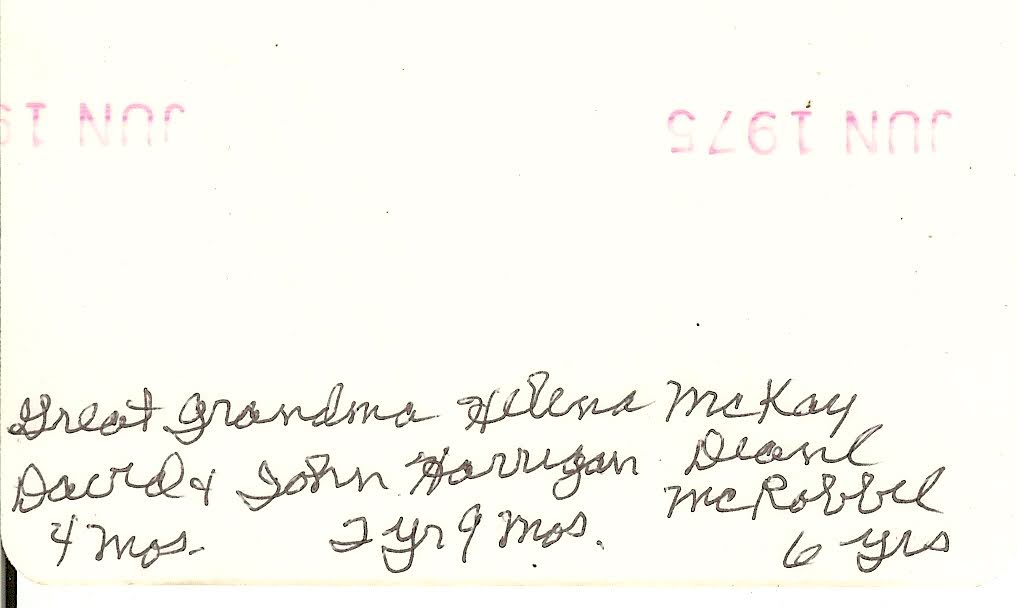 JUN 19
JUN 1975
Great Grandma Helena McKay
David & John Harrigan Deane
4 Mos. 2 yr 9 Mos. McRobbel
6 yrs